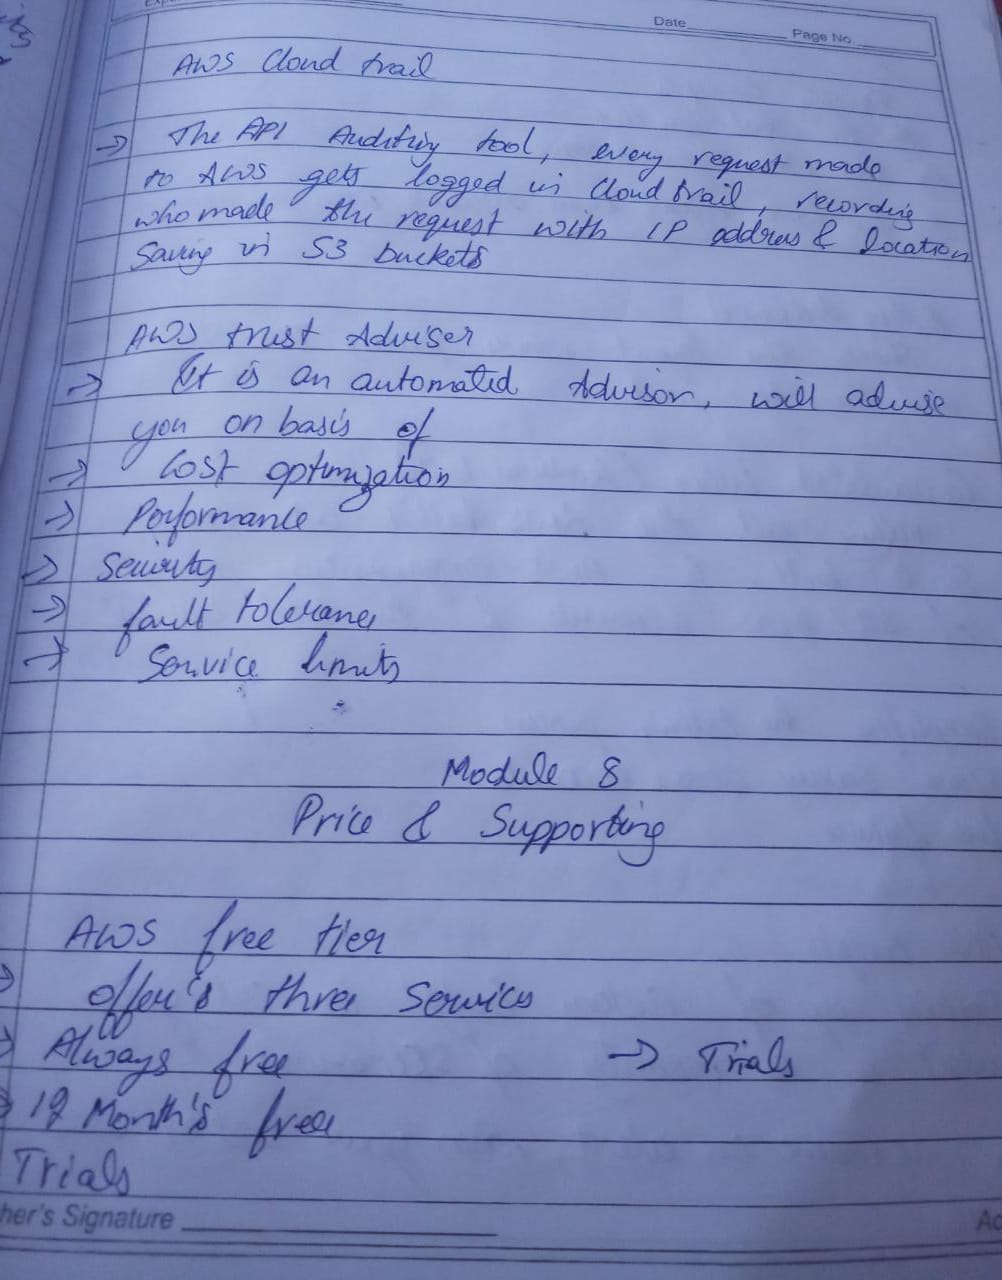 Date
Page No.
AWS Cloud trail
→ The API Auditing tool, every request made
to AWS gets logged in Cloud trail, recording
who made the request with IP address & location
Saving in S3 buckets
AWS trust Adviser
→ It is an automated Advisor, will advise
you on basis of
→ Cost optimization
→ Performance
→ Security
→ fault tolerance
→ Service limits
Module 8
Price & Supporting
AWS free tier
→ offer's three Services
→ Always free → Trials
→ 12 Month's free
Trials
her's Signature